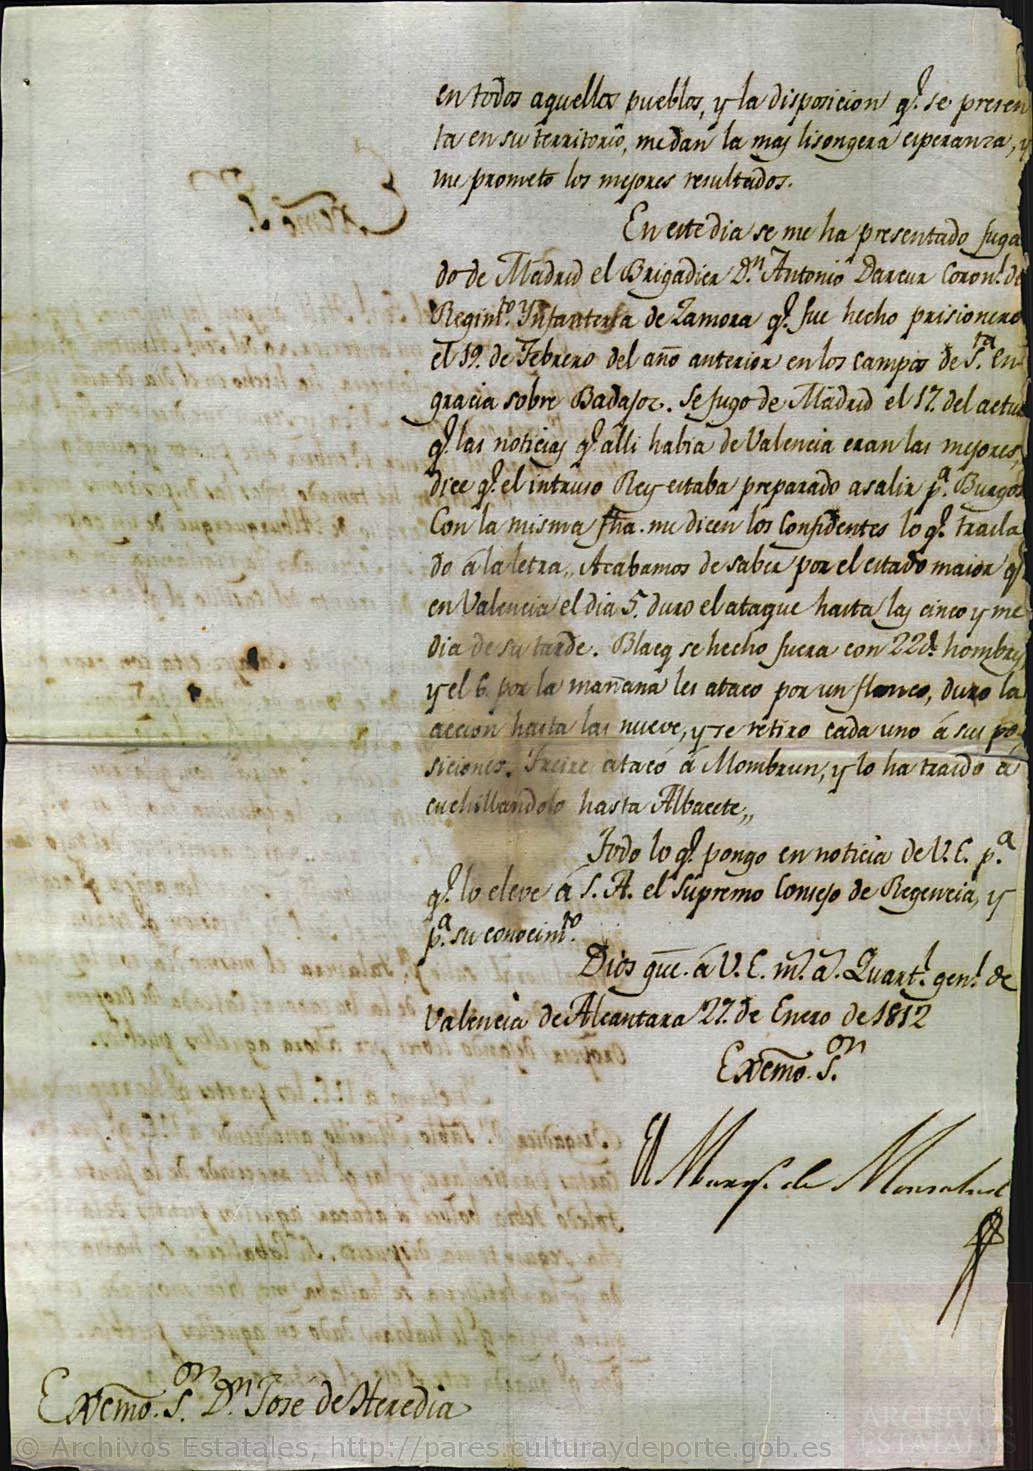 en todos aquellos pueblos, y la disposicion q.e se presen
ta en su territorio, me dan la mas lisongera esperanza, y
me prometo los mejores resultados.
En este dia se me ha presentado fuga
do de Madrid el Brigadier D.n Antonio Darcur Coron.l de
Regim.to Ynfanteria de Zamora q.e fue hecho prisionero
el 19. de Febrero del año anterior en los campos de S.ta En
gracia sobre Badajoz. Se fugo de Madrid el 17. del actua
q.e las noticias q.e alli habia de Valencia eran las mejores,
dice q.e el intruso Rey estaba preparado a salir p.a Burgos
Con la misma fha. me dicen los Confidentes lo q.e trasla
do á la letra,, Acabamos de saber por el estado maior q.e
en Valencia el dia 5. duro el ataque hasta las cinco y me
dia de su tarde. Blacq se hecho fuera con 22d. hombres
y el 6. por la mañana les ataco por un flanco, duro la
accion hasta las nueve, y se retiro cada uno á sus po
siciones. Freire atacó á Mombrun, y lo ha traido á
cuchillandolo hasta Albacete,,
Todo lo q.e pongo en noticia de V.E. p.a
q.e lo eleve á S. A. el Supremo Consejo de Regencia, y
p.a su conocim.to
Dios gue. á V. E. m.s a.s Quart.l gen.l de
Valencia de Alcantara 27. de Enero de 1812
Exemo. S.or
El Marq.s de Monsalud
Exemo. S.or D.n Jose de Heredia
© Archivos Estatales, http://pares.culturaydeporte.gob.es
ARCHIVOS
ESTATALES